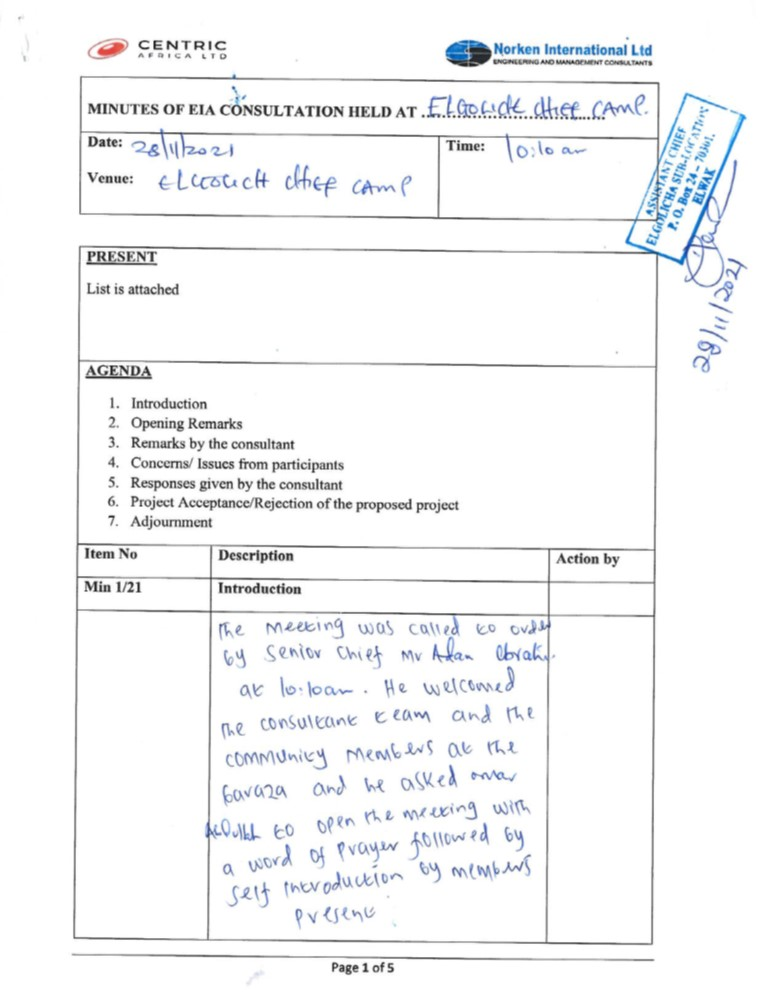 CENTRIC
AFRICA LTD
Norken International Ltd
ENGINEERING AND MANAGEMENT CONSULTANTS
MINUTES OF EIA CONSULTATION HELD AT ELGOLICH CHIEF CAMP.
Date: 28/11/2021
Time: 10:10 am
Venue: ELGOLICH CHIEF CAMP
ASSISTANT CHIEF
ELGOLICHA SUB-LOCATION
P. O. Box 24 - 70301,
ELWAK
28/11/2021
PRESENT
List is attached
AGENDA
1. Introduction
2. Opening Remarks
3. Remarks by the consultant
4. Concerns/ Issues from participants
5. Responses given by the consultant
6. Project Acceptance/Rejection of the proposed project
7. Adjournment
Item No Description Action by
Min 1/21 Introduction
The meeting was called to order
by Senior Chief Mr Adan
at 10:10am. He welcomed
the consultant team and the
community members at the
baraza and he asked omar
Abdullah to open the meeting with
a word of prayer followed by
self introduction by members
present.
Page 1 of 5